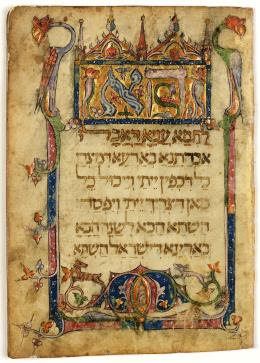 הא
לחמא עניא דאכלו
בארעא
כל דכפין ייתי ויכול כל
דצריך ייתי ויפסח
השתא הכא לשנה
דישראל השתא